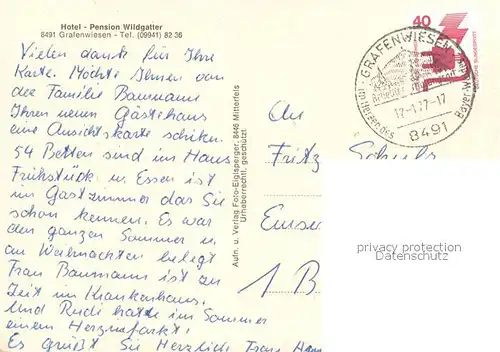 Hotel - Pension Wildgatter
8491 Grafenwiesen - Tel. (09941) 82 36
Vielen dank für Ihre
Karte. Möchte Ihnen von
der Familie Baumann
Ihren neuen Gästehaus
eine Ansichtskarte schiken.
54 Betten sind im Haus
Frühstück u. Essen ist
im Gastzimmer das Sie
schon kennen. Es war
den ganzen Sommer u.
an Weihnachten belegt
Frau Baumann ist zu
Zeit im Krankenhaus.
Und Rudi hatte im Sommer
einen Herzinfarkt!
Es grüßt Sie Herzlich Frau
Aufn. u. Verlag Foto-Eiglsperger, 8446 Mitterfels
Urheberrechtl. geschützt
40
DEUTSCHE BUNDESPOST
GRAFENWIESEN
im Herzen des
Bayer.
17-1.77-17
8491
An
Fritz
1 B
privacy protection
Datenschutz